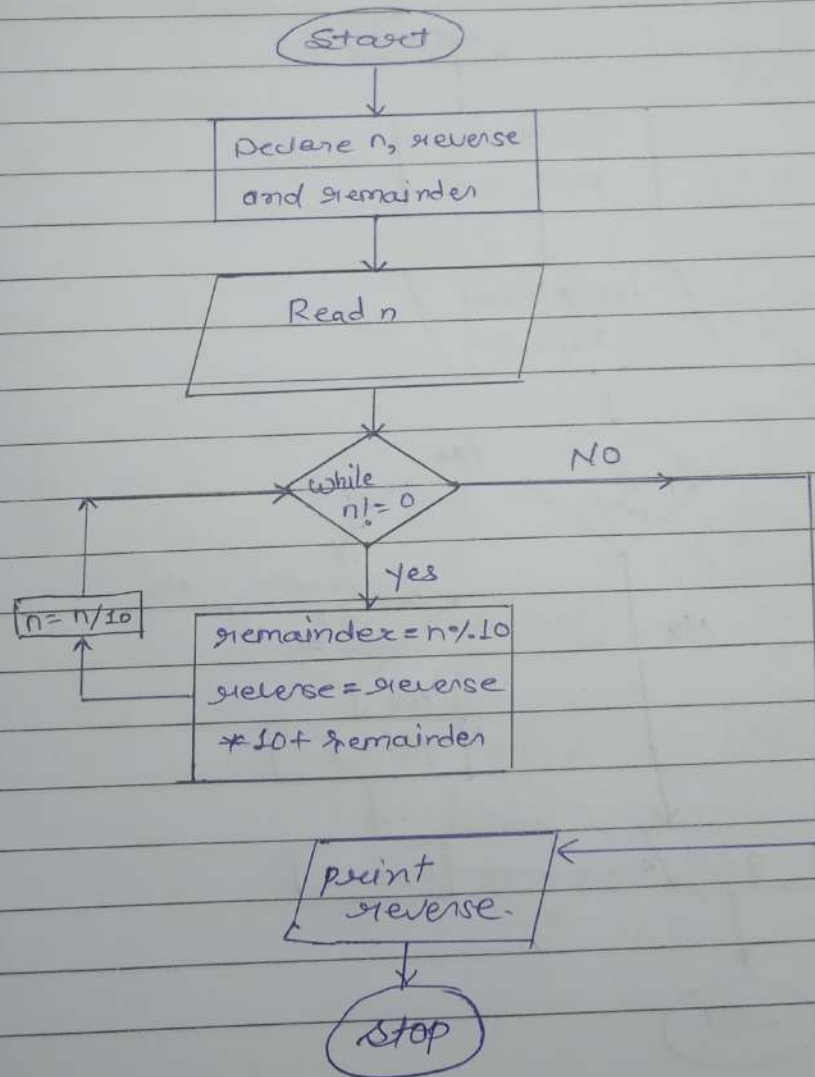 Start
Declare n, reverse
and remainder
Read n
while
n!= 0
NO
Yes
n= n/10
remainder = n%10
reverse = reverse
* 10+ remainder
print
reverse.
Stop